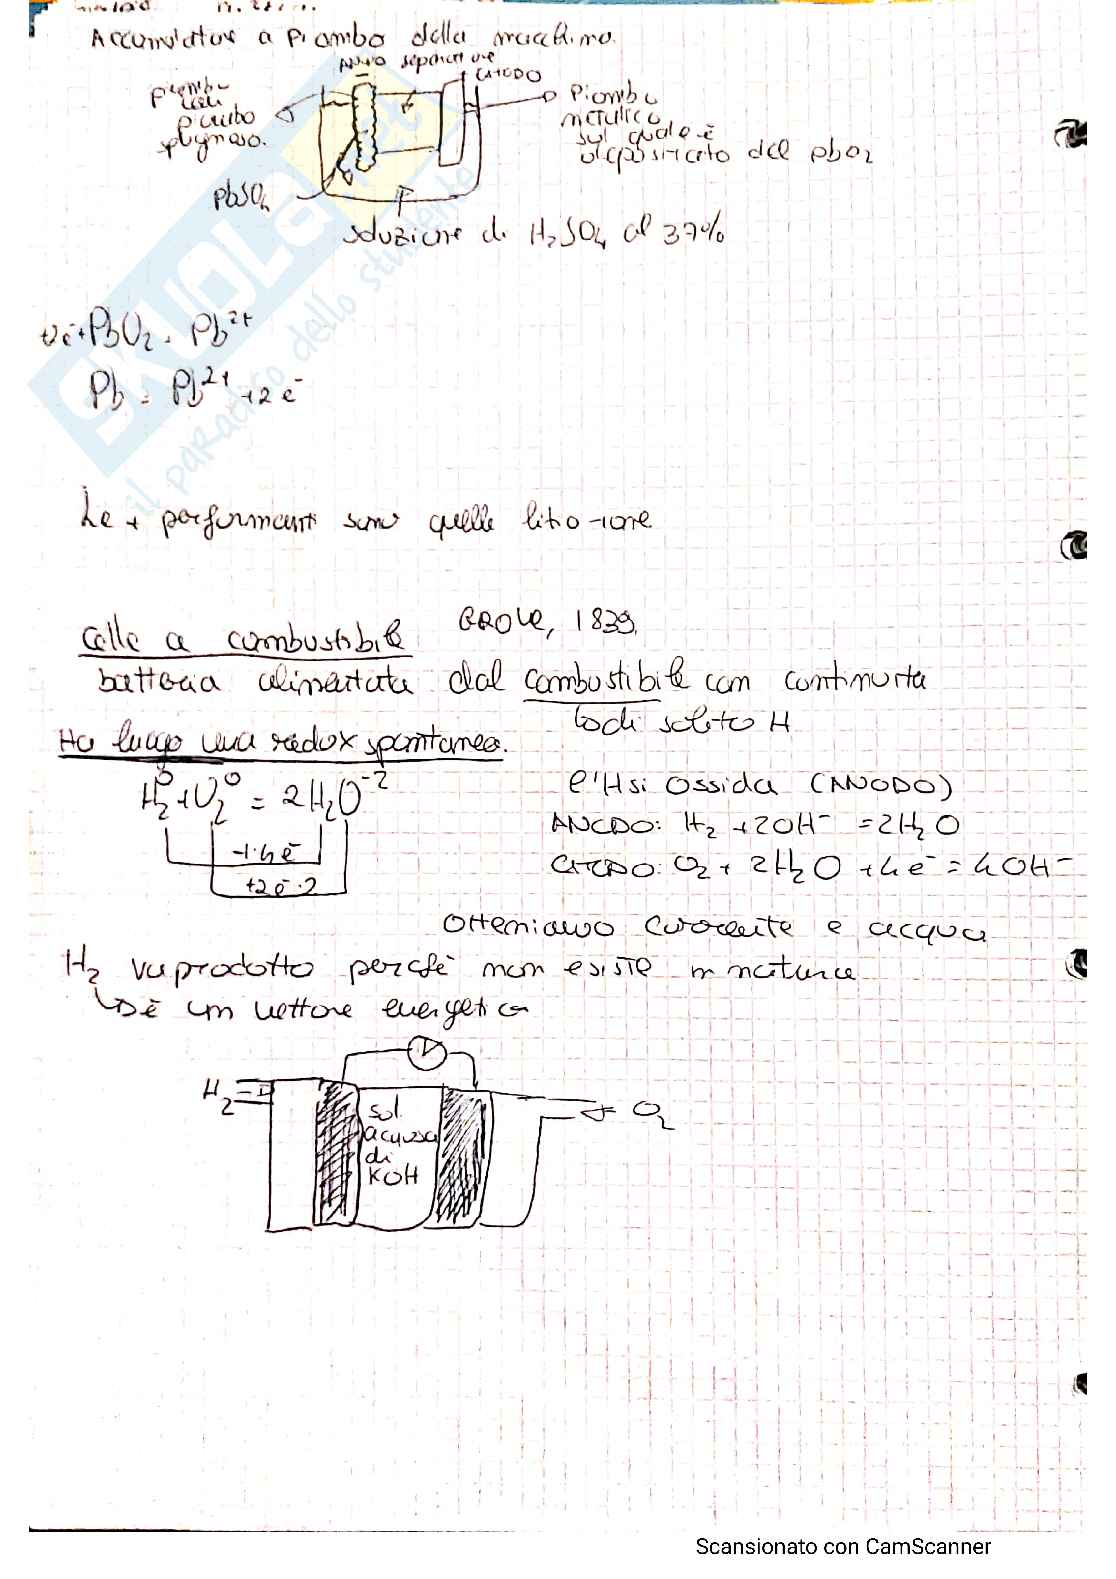 Accumulatore a piombo della macchina.
ANODO separatore
CATODO
piombo
con
piombo
spugnoso.
Piombo
metallico
sul quale è
depositato del PbO2
PbSO4
soluzione di H2SO4 al 37%
+2e-+PbO2 = Pb2+
Pb = Pb2+ +2e-
Le + performanti sono quelle litio-ione
Celle a combustibile GROVE, 1839.
batteria alimentata dal combustibile con continuità
di solito H
Ha luogo una redox spontanea.
H2 0 + O2 0 = 2H2O-2
-1·4e-
+2e-·2
l'H si ossida (ANODO)
ANODO: H2 + 2OH- = 2H2O
CATODO: O2 + 2H2O + 4e- = 4OH-
Otteniamo corrente e acqua
H2 va prodotto perché non esiste in natura
è un vettore energetico
V
H2
sol
acquosa
di
KOH
O2
SKUOLA.net
il paradiso dello studente
Scansionato con CamScanner